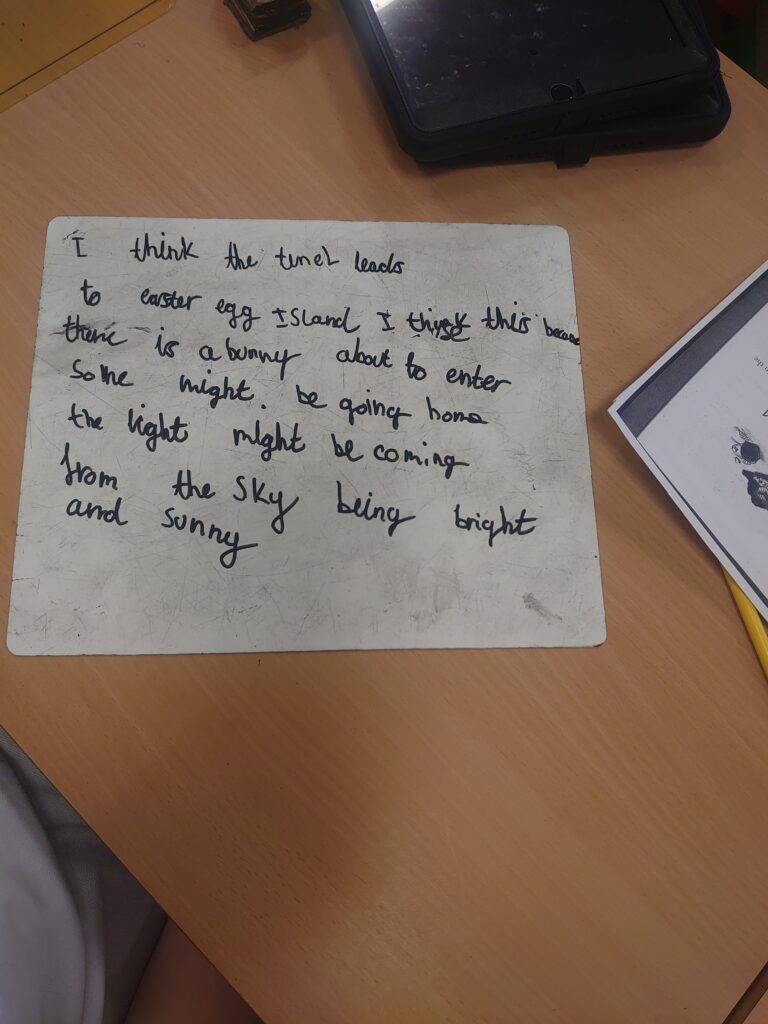 I think the tunel leads
to easter egg Island I think this because
there is a bunny about to enter
Some might be going home
the light might be coming
from the sky being bright
and sunny